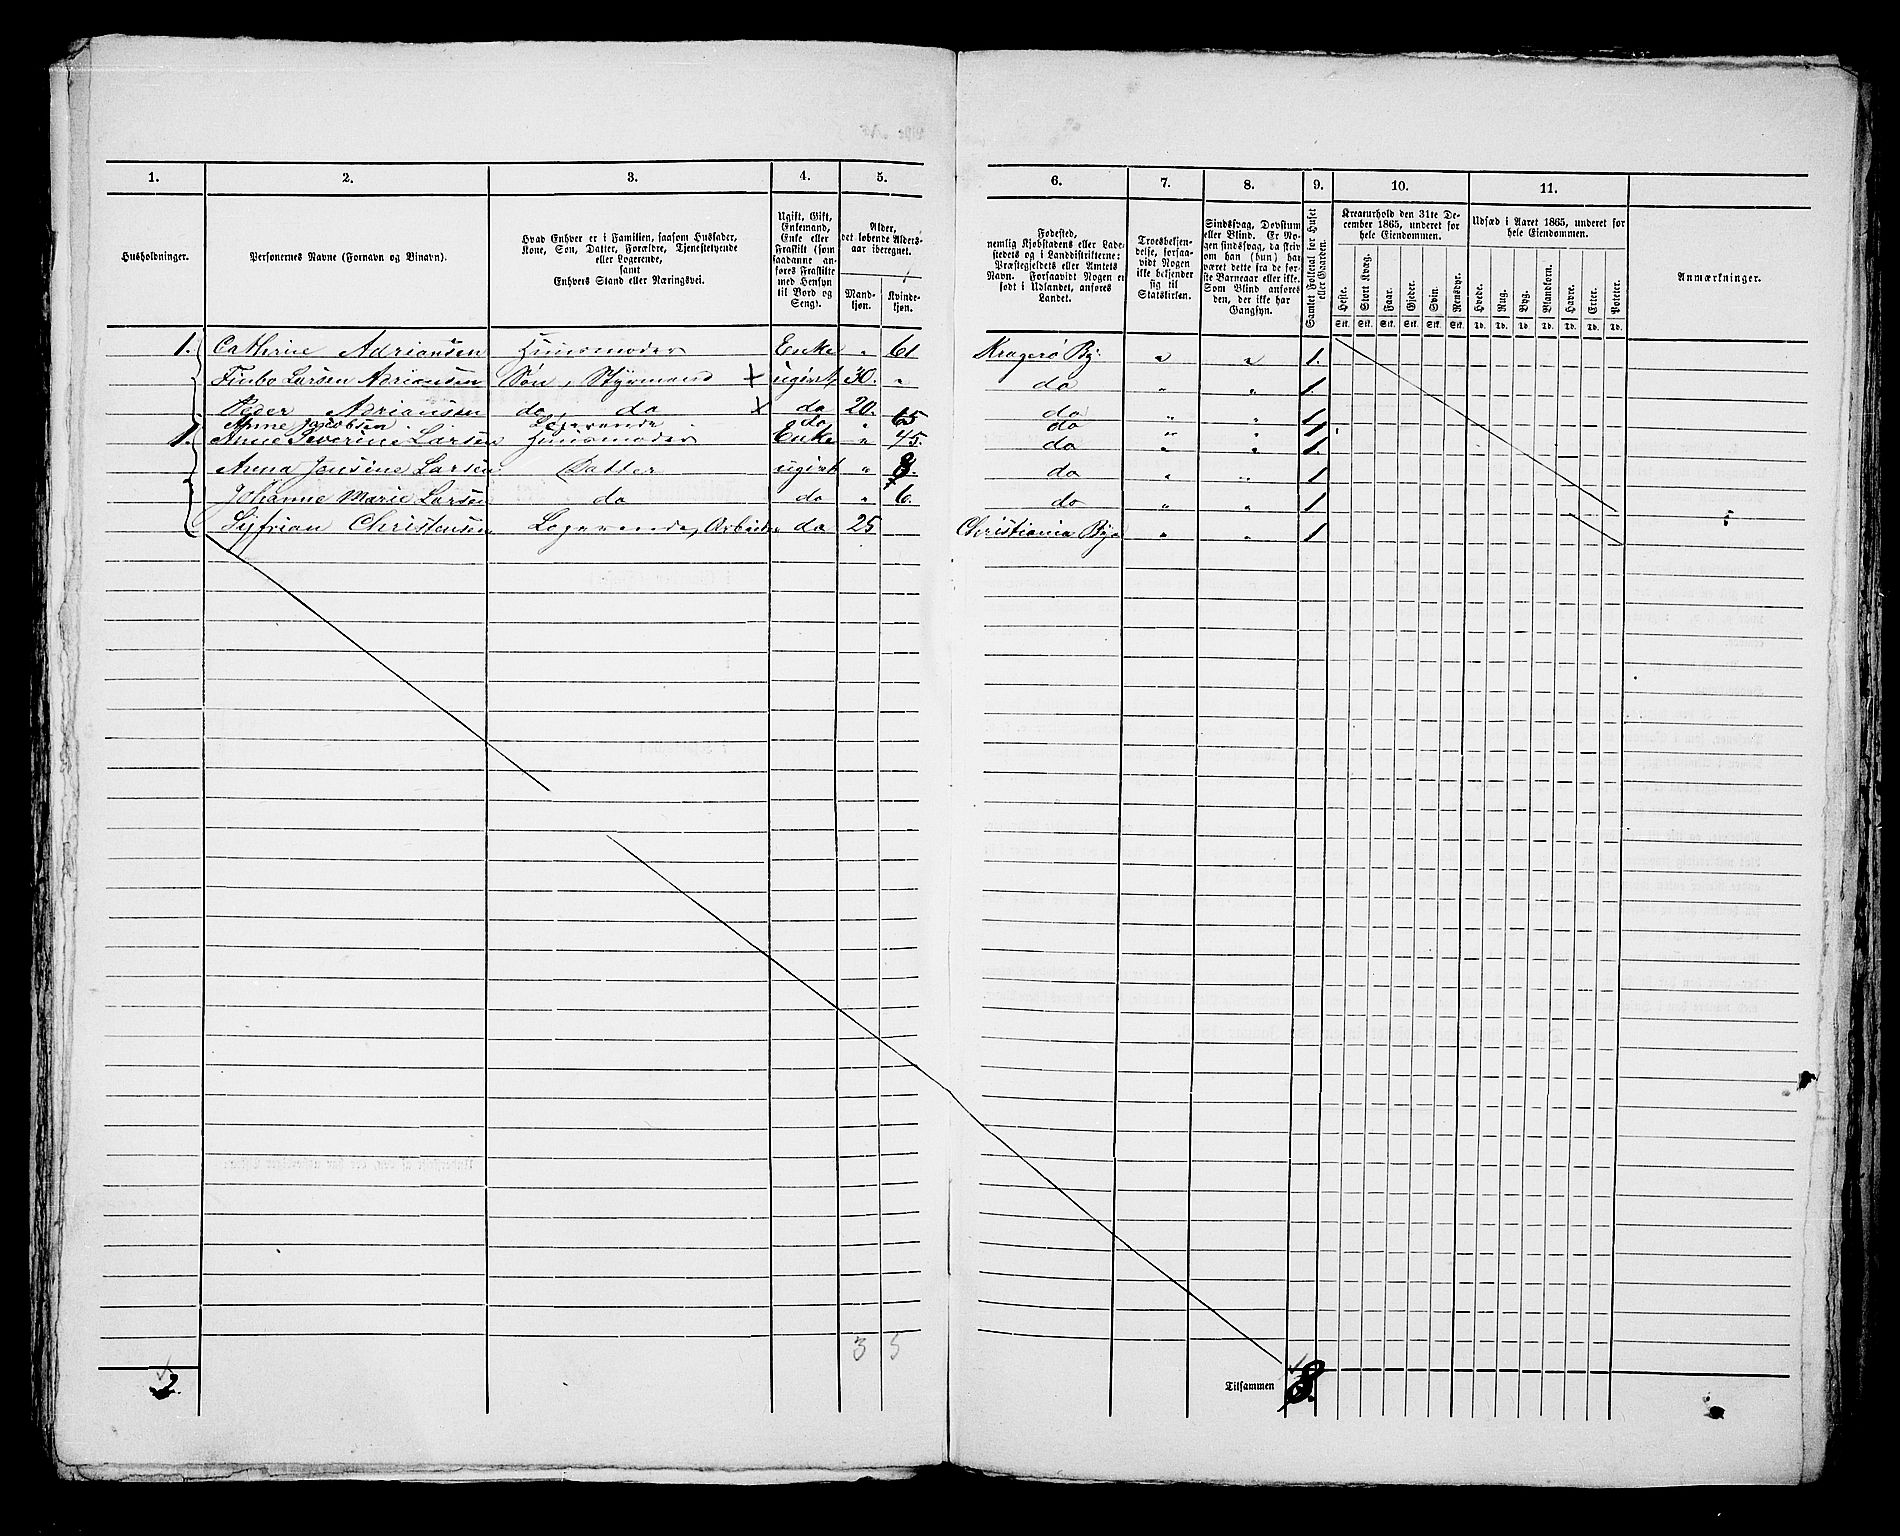 1. 2. 3. 4. 5. 6. 7. 8. 9. 10. 11.
Husholdninger.
Personernes Navne (Fornavn og Binavn).
Hvad Enhver er i Familien, saasom Husfader,
Kone, Søn, Datter, Forældre, Tjenestetyende
eller Logerende,
samt
Enhvers Stand eller Næringsvei.
Ugift, Gift,
Enkemand,
Enke eller
Fraskilt (som
saadanne an-
føres Fraskilte
med Hensyn
til Bord og
Seng).
Alder,
det løbende Alders-
aar iberegnet.
Mand-
kjøn.
Kvinde-
kjøn.
Fødested,
nemlig Kjøbstadens eller Lade-
stedets og i Landdistrikterne:
Præstegjeldets eller Amtets
Navn. Forsaavidt Nogen er
født i Udlandet, anføres
Landet.
Troesbekjen-
delse, forsaa-
vidt Nogen
ikke bekjender
sig til
Statskirken.
Sindssvag, Døvstum
eller Blind. Er No-
gen sindssvag, da skriv
om han (hun) har
været dette fra de før-
ste Barneaar eller ikke.
Som Blind anføres
den, der ikke har
Gangsyn.
Samlet Folketal for Huset
eller Gaarden.
Kreaturhold den 31te De-
cember 1865, underet for
hele Eiendommen.
Heste. Stort Kvæg. Faar. Gjeder. Svin. Rensdyr.
Stk. Stk. Stk. Stk. Stk. Stk.
Udsæd i Aaret 1865, underet for
hele Eiendommen.
Hvede. Rug. Byg. Blandkorn. Havre. Erter. Poteter.
Td. Td. Td. Td. Td. Td. Td.
Anmærkninger.
1. Cathrine Adriansen Huusmoder Enke " 61 Kragerø By " " 1.
Finbo Larsen Adriansen Søn, Styrmand x ugivt 30. " do " " 1.
Peder Adriansen do do x do 20. do " " 1
Anne Jacobsen Logerende do " 65 do " " 1
1. Anne Severine Larsen Huusmoder Enke " 45. do " " 1.
Anna Jensine Larsen Datter ugivt " 8. do " " 1
Johanne Marie Larsen do do " 6. do " " 1
Syfrian Christensen Logerende, Arbeider do 25 Christiania By " " 1
3 5
2.
Tilsammen 8.